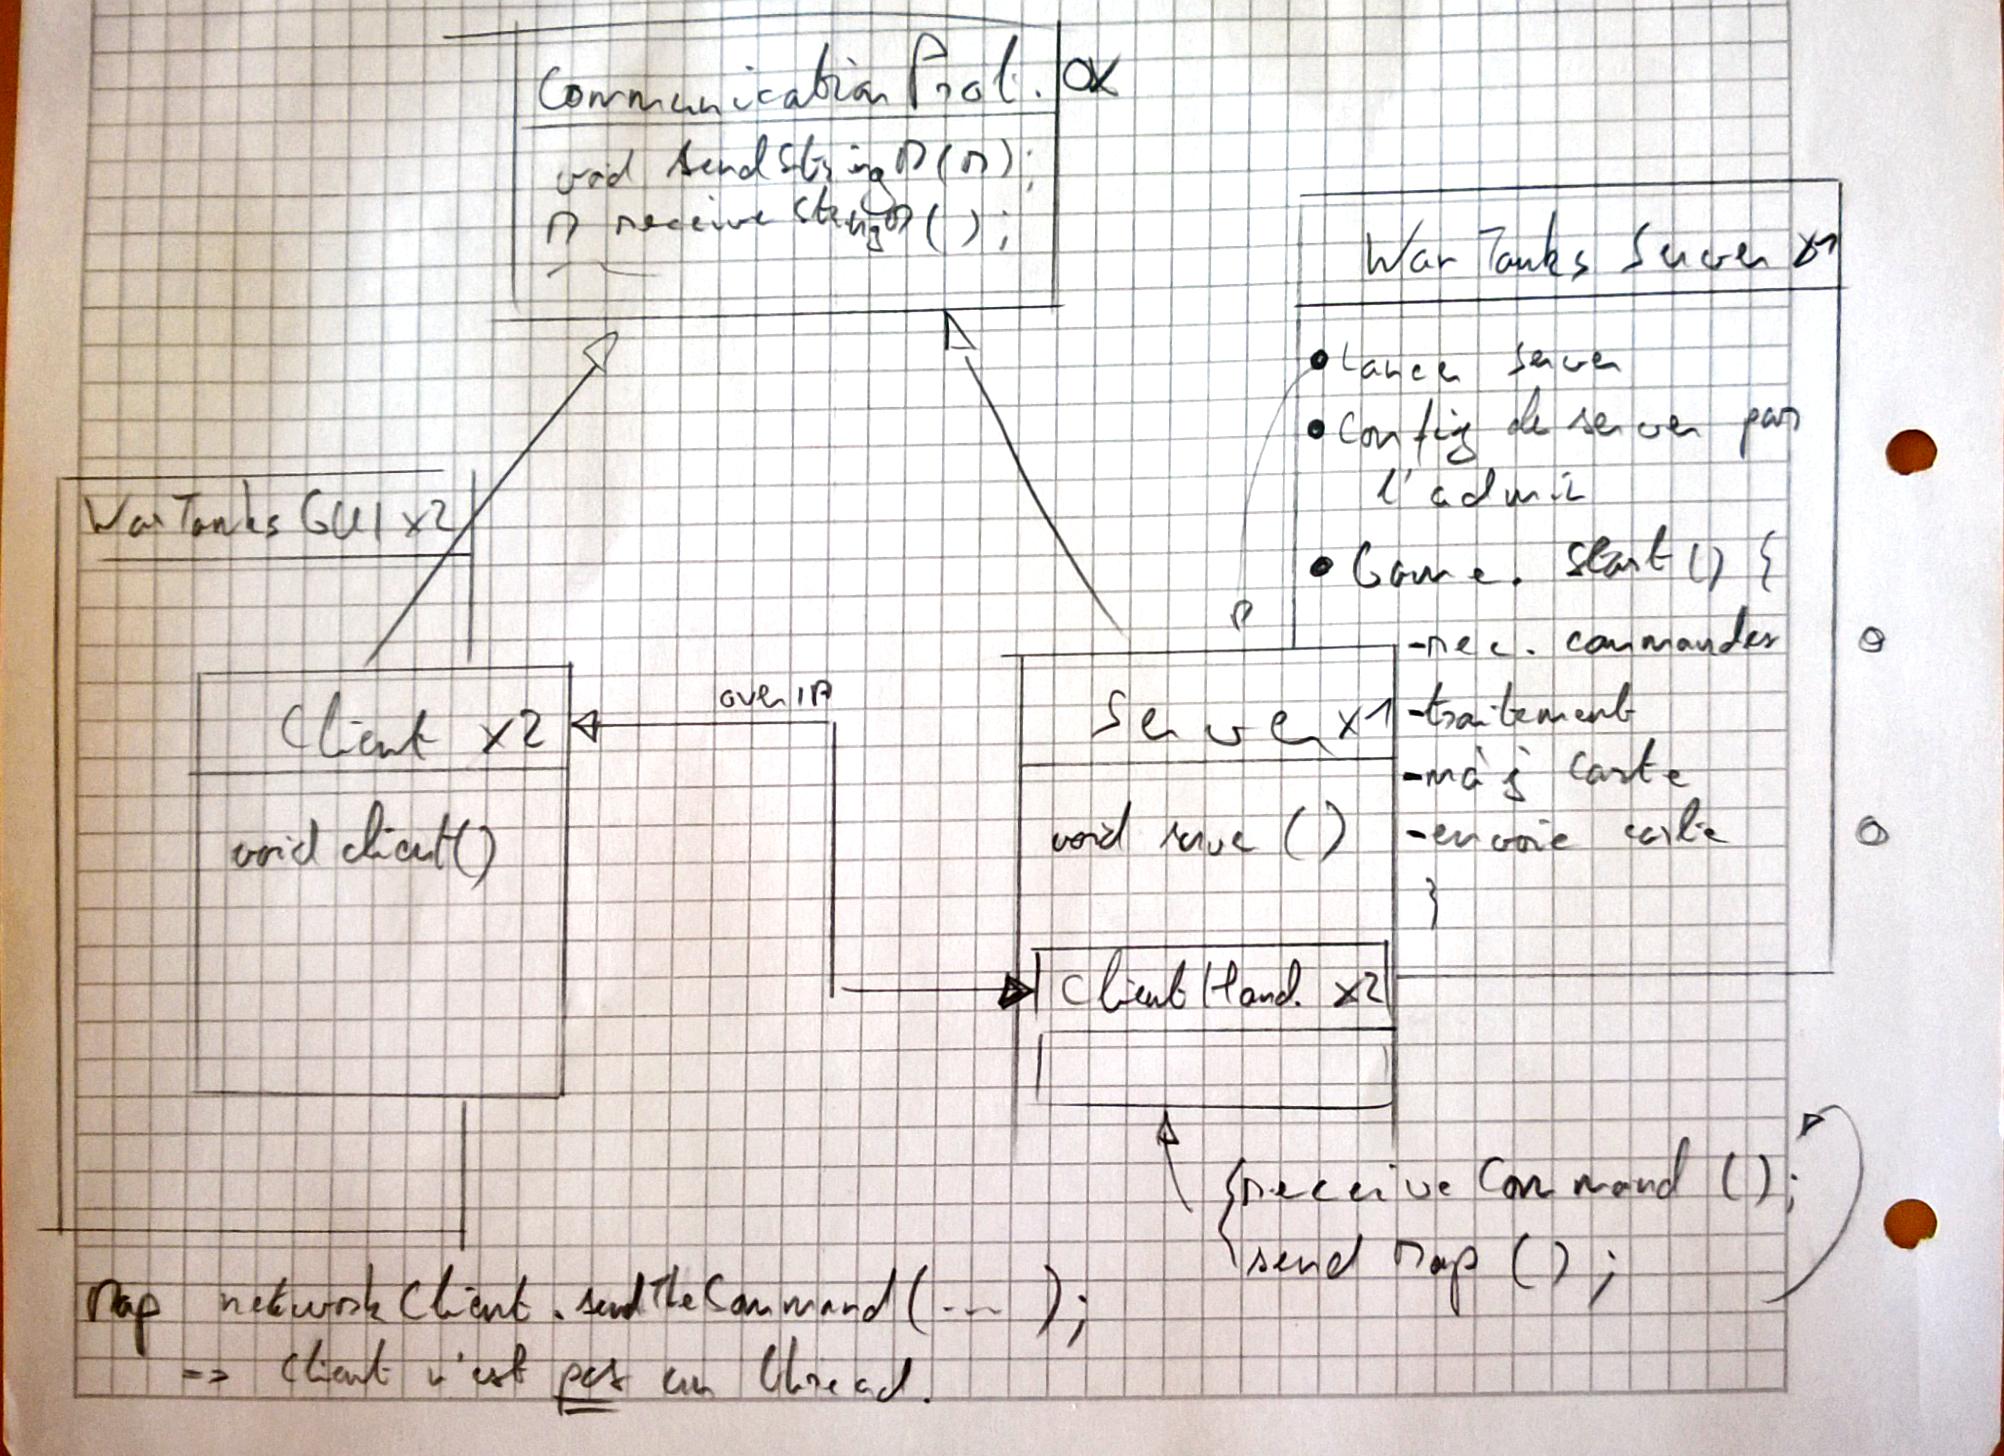 Communication Prot. OK
void sendStringM(M);
M receiveStringM();
War Tanks Server x1
• Lancer server
• Config de server par
l'admin
• Game.start() {
-rec. commandes
-traitement
-màj carte
-envoie carte
}
WarTanks GUI x2
Client x2
void client()
over IP
Server x1
void serve ()
Client Hand. x2
{receive Command ();
send Map ();
Map networkClient.sendTheCommand(---);
=> Client n'est pas un thread.